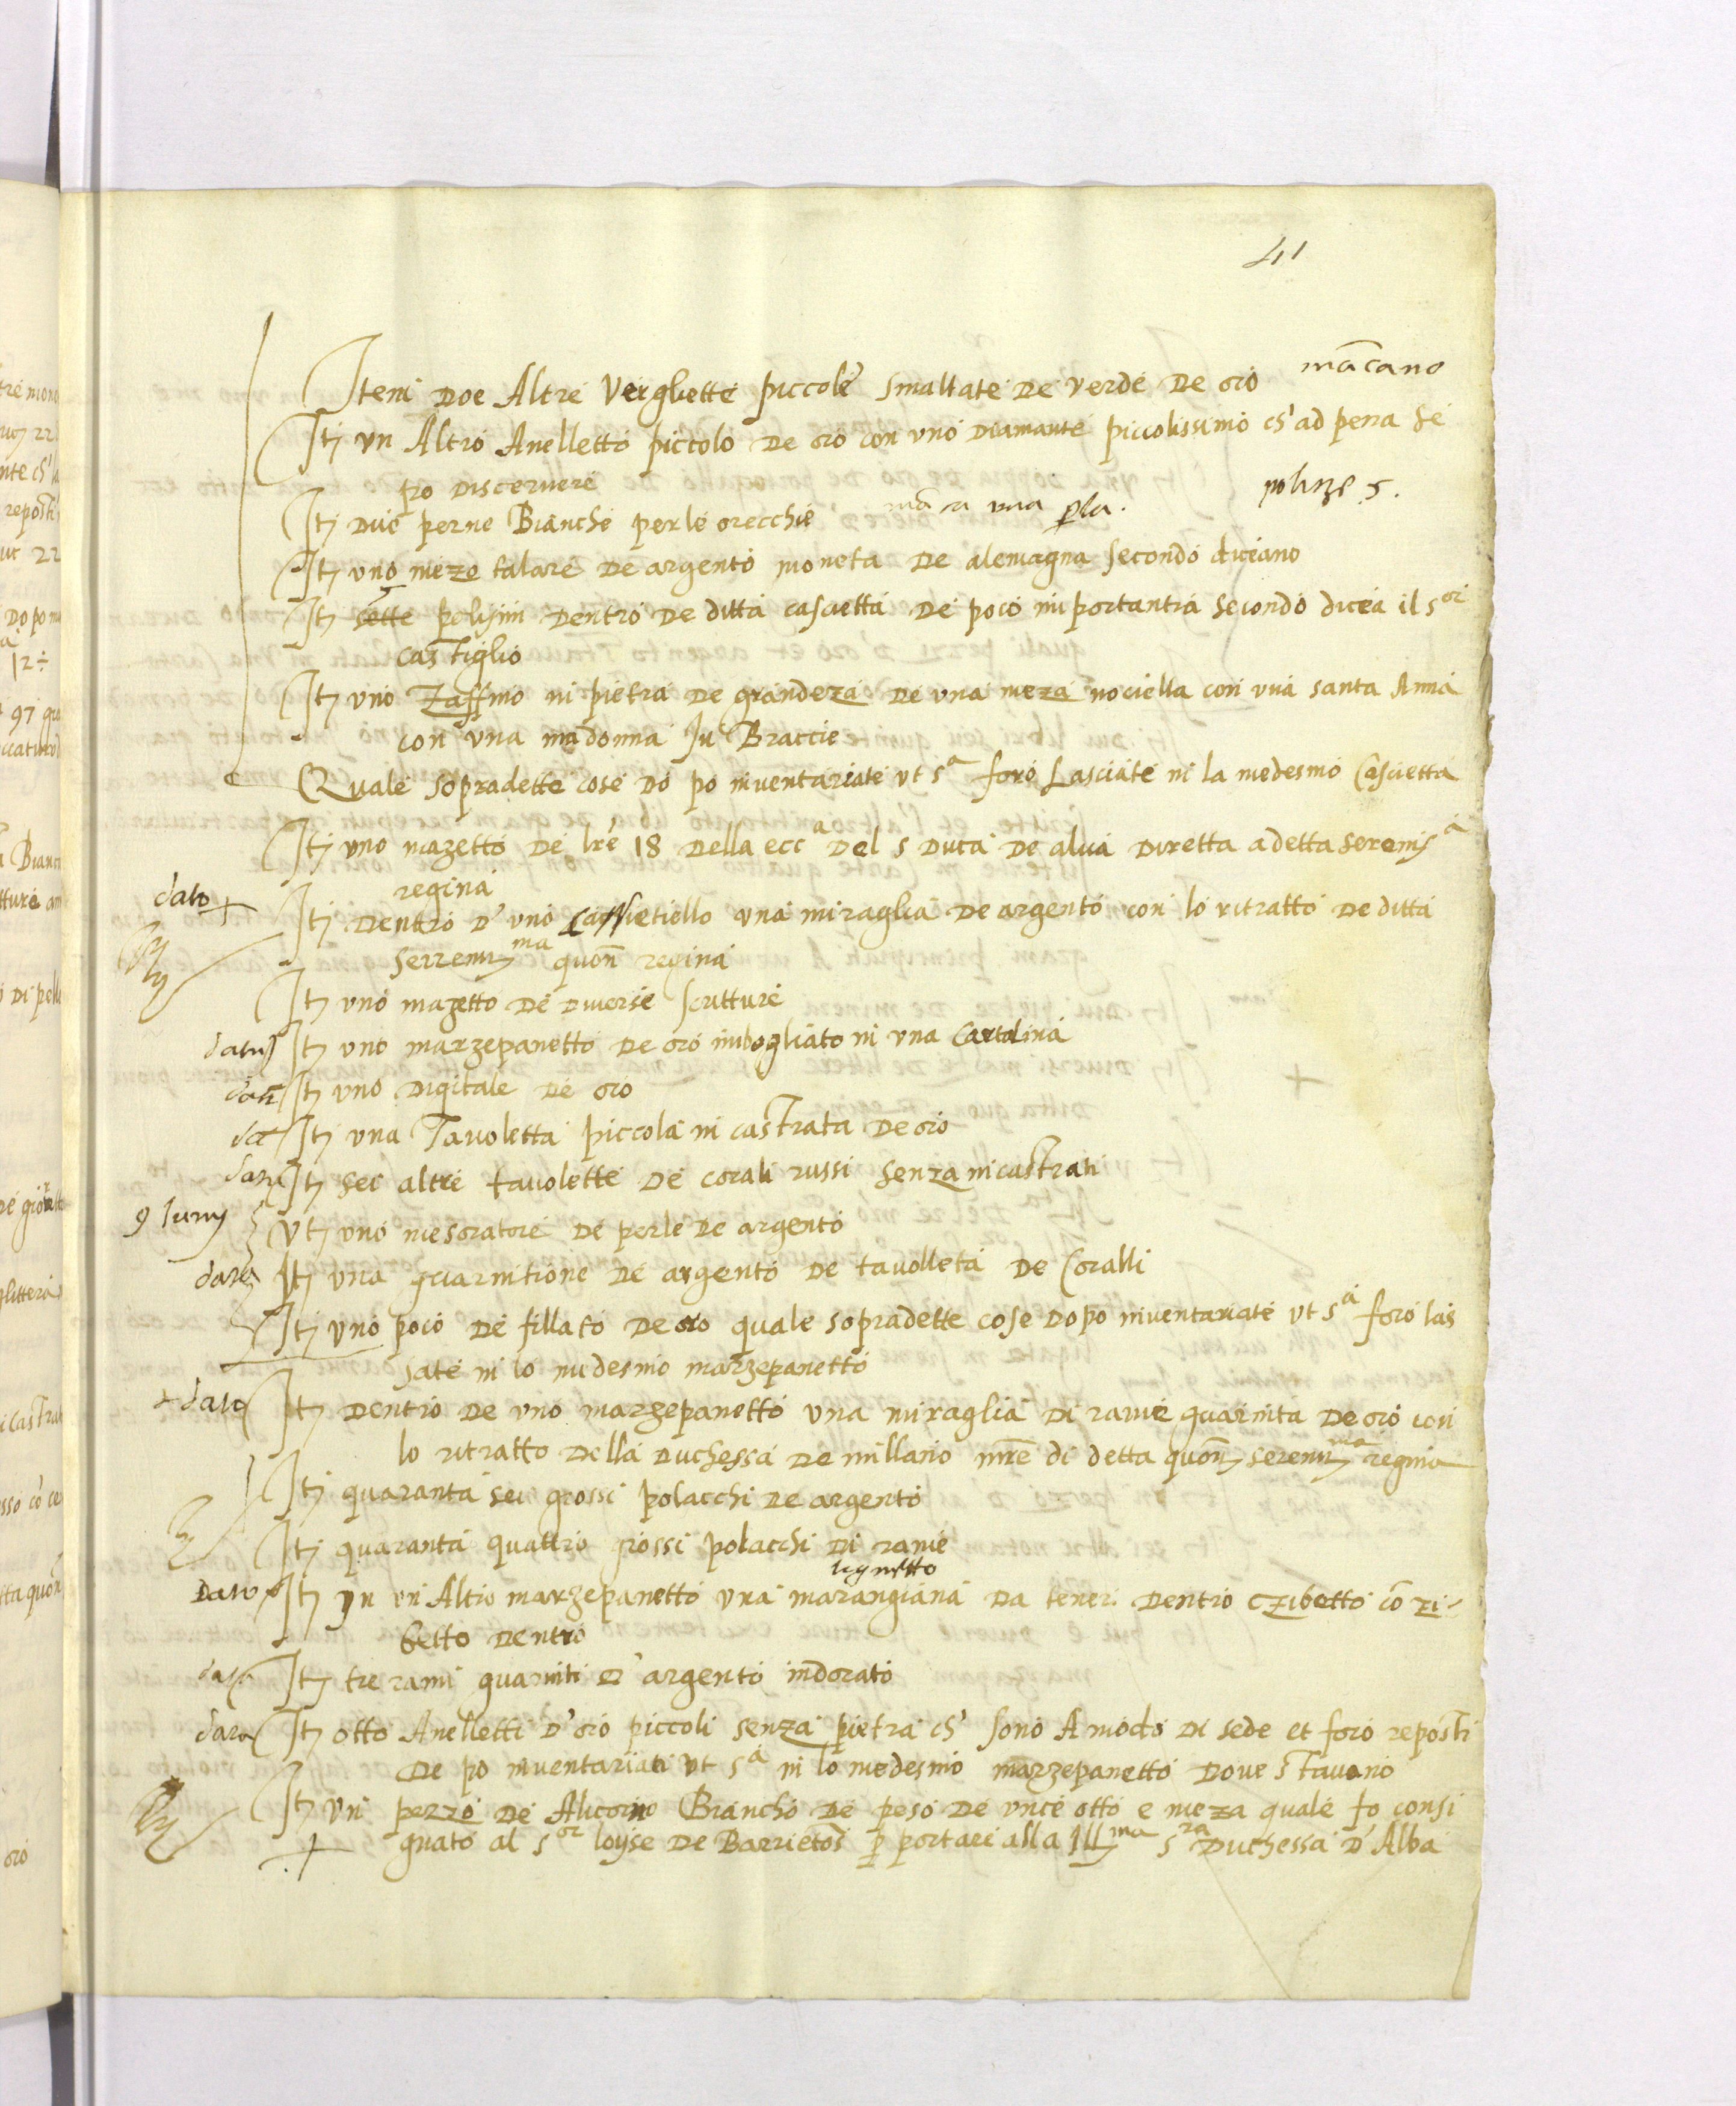 41
Item doe Altre Verghette piccole smaltate de verde de oro mācano
Itỹ un Altro Anelletto piccolo de oro con uno diamante piccolissimo ch' ad pena se
po discernere
Itỹ due perne Bianche per le orecchie māca una perla. polize 5.
Itỹ uno mezo talare de argento moneta de alemagna secondo diceano
Itỹ sette polisini dentro de ditta cascietta de poco importantia secondo dicea il sor
Castiglio
Itỹ uno Zaffino in pietra de grandeza de una meza nociella con una santa Anna
con una madonna in Braccie
Quale sopradette cose do po inventariate ut sa foro Lasciate in la medesmo Cascietta
Itỹ uno mazetto de lre 18 della ecca del s Duca de alva diretta a detta serenisa
regina
dato + Itỹ dentro d' uno cassietiello una miraglia de argento con lo ritratto de ditta
serrenisma quon regina
Itỹ uno mazetto de diverse scritture
datus Itỹ uno marzepanetto de oro imbogliato in una Cartolina
dati Itỹ uno digitale de oro
dat Itỹ una Tavoletta piccola incastrata de oro
data Itỹ sei altre tavolette de corali russi senza incastrati
9 Iunij Itỹ uno mesoratore de perle de argento
data Itỹ una guarnitione de argento de tavolleta de Coralli
Itỹ uno poco de fillato de oro quale sopradette cose dopo inventariate ut sa foro las
sate in lo medesmo marzepanetto
+ dato Itỹ dentro de uno marzepanetto una miraglia di rame guarnita de oro con
lo ritratto della duchessa de millano mre di detta quon serenisma regina
Itỹ quaranta sei grossi polacchi de argento
Itỹ quaranta quattro grossi polacchi di rame
legnetto
Dato Itỹ yn un Altro marzepanetto una marangiana da tener dentro czibetto cō zi-
betto dentro
data Itỹ tre rami guarniti d' argento indorato
data Itỹ otto Anelletti d' oro piccoli senza pietra ch' sono A modo di sede et foro reposti
de po inventariati ut sa in lo medesmo marzepanetto dove stavano
Itỹ un pezzo de Alicorno Biancho de peso de unce otto e meza quale fo consi
+ gnato al sor loyse de Barrietos p portare alla Illma sra Duchessa d' Alba